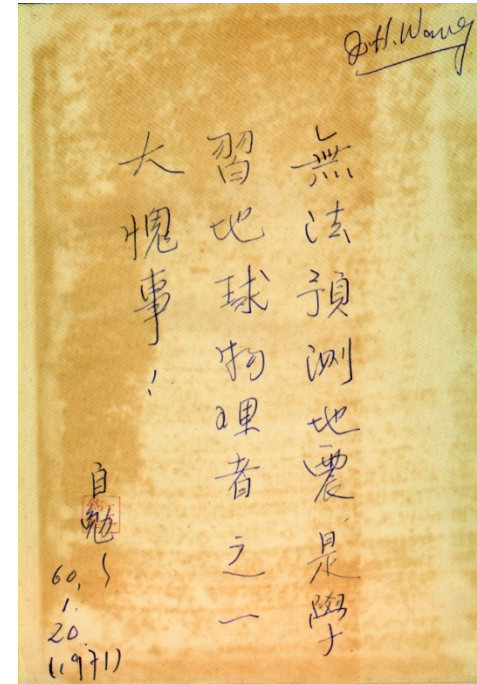 J.H. Wang
無法預測地震是學
習地球物理者之一
大愧事！
自勉～
60.
1.
20.
(1971)